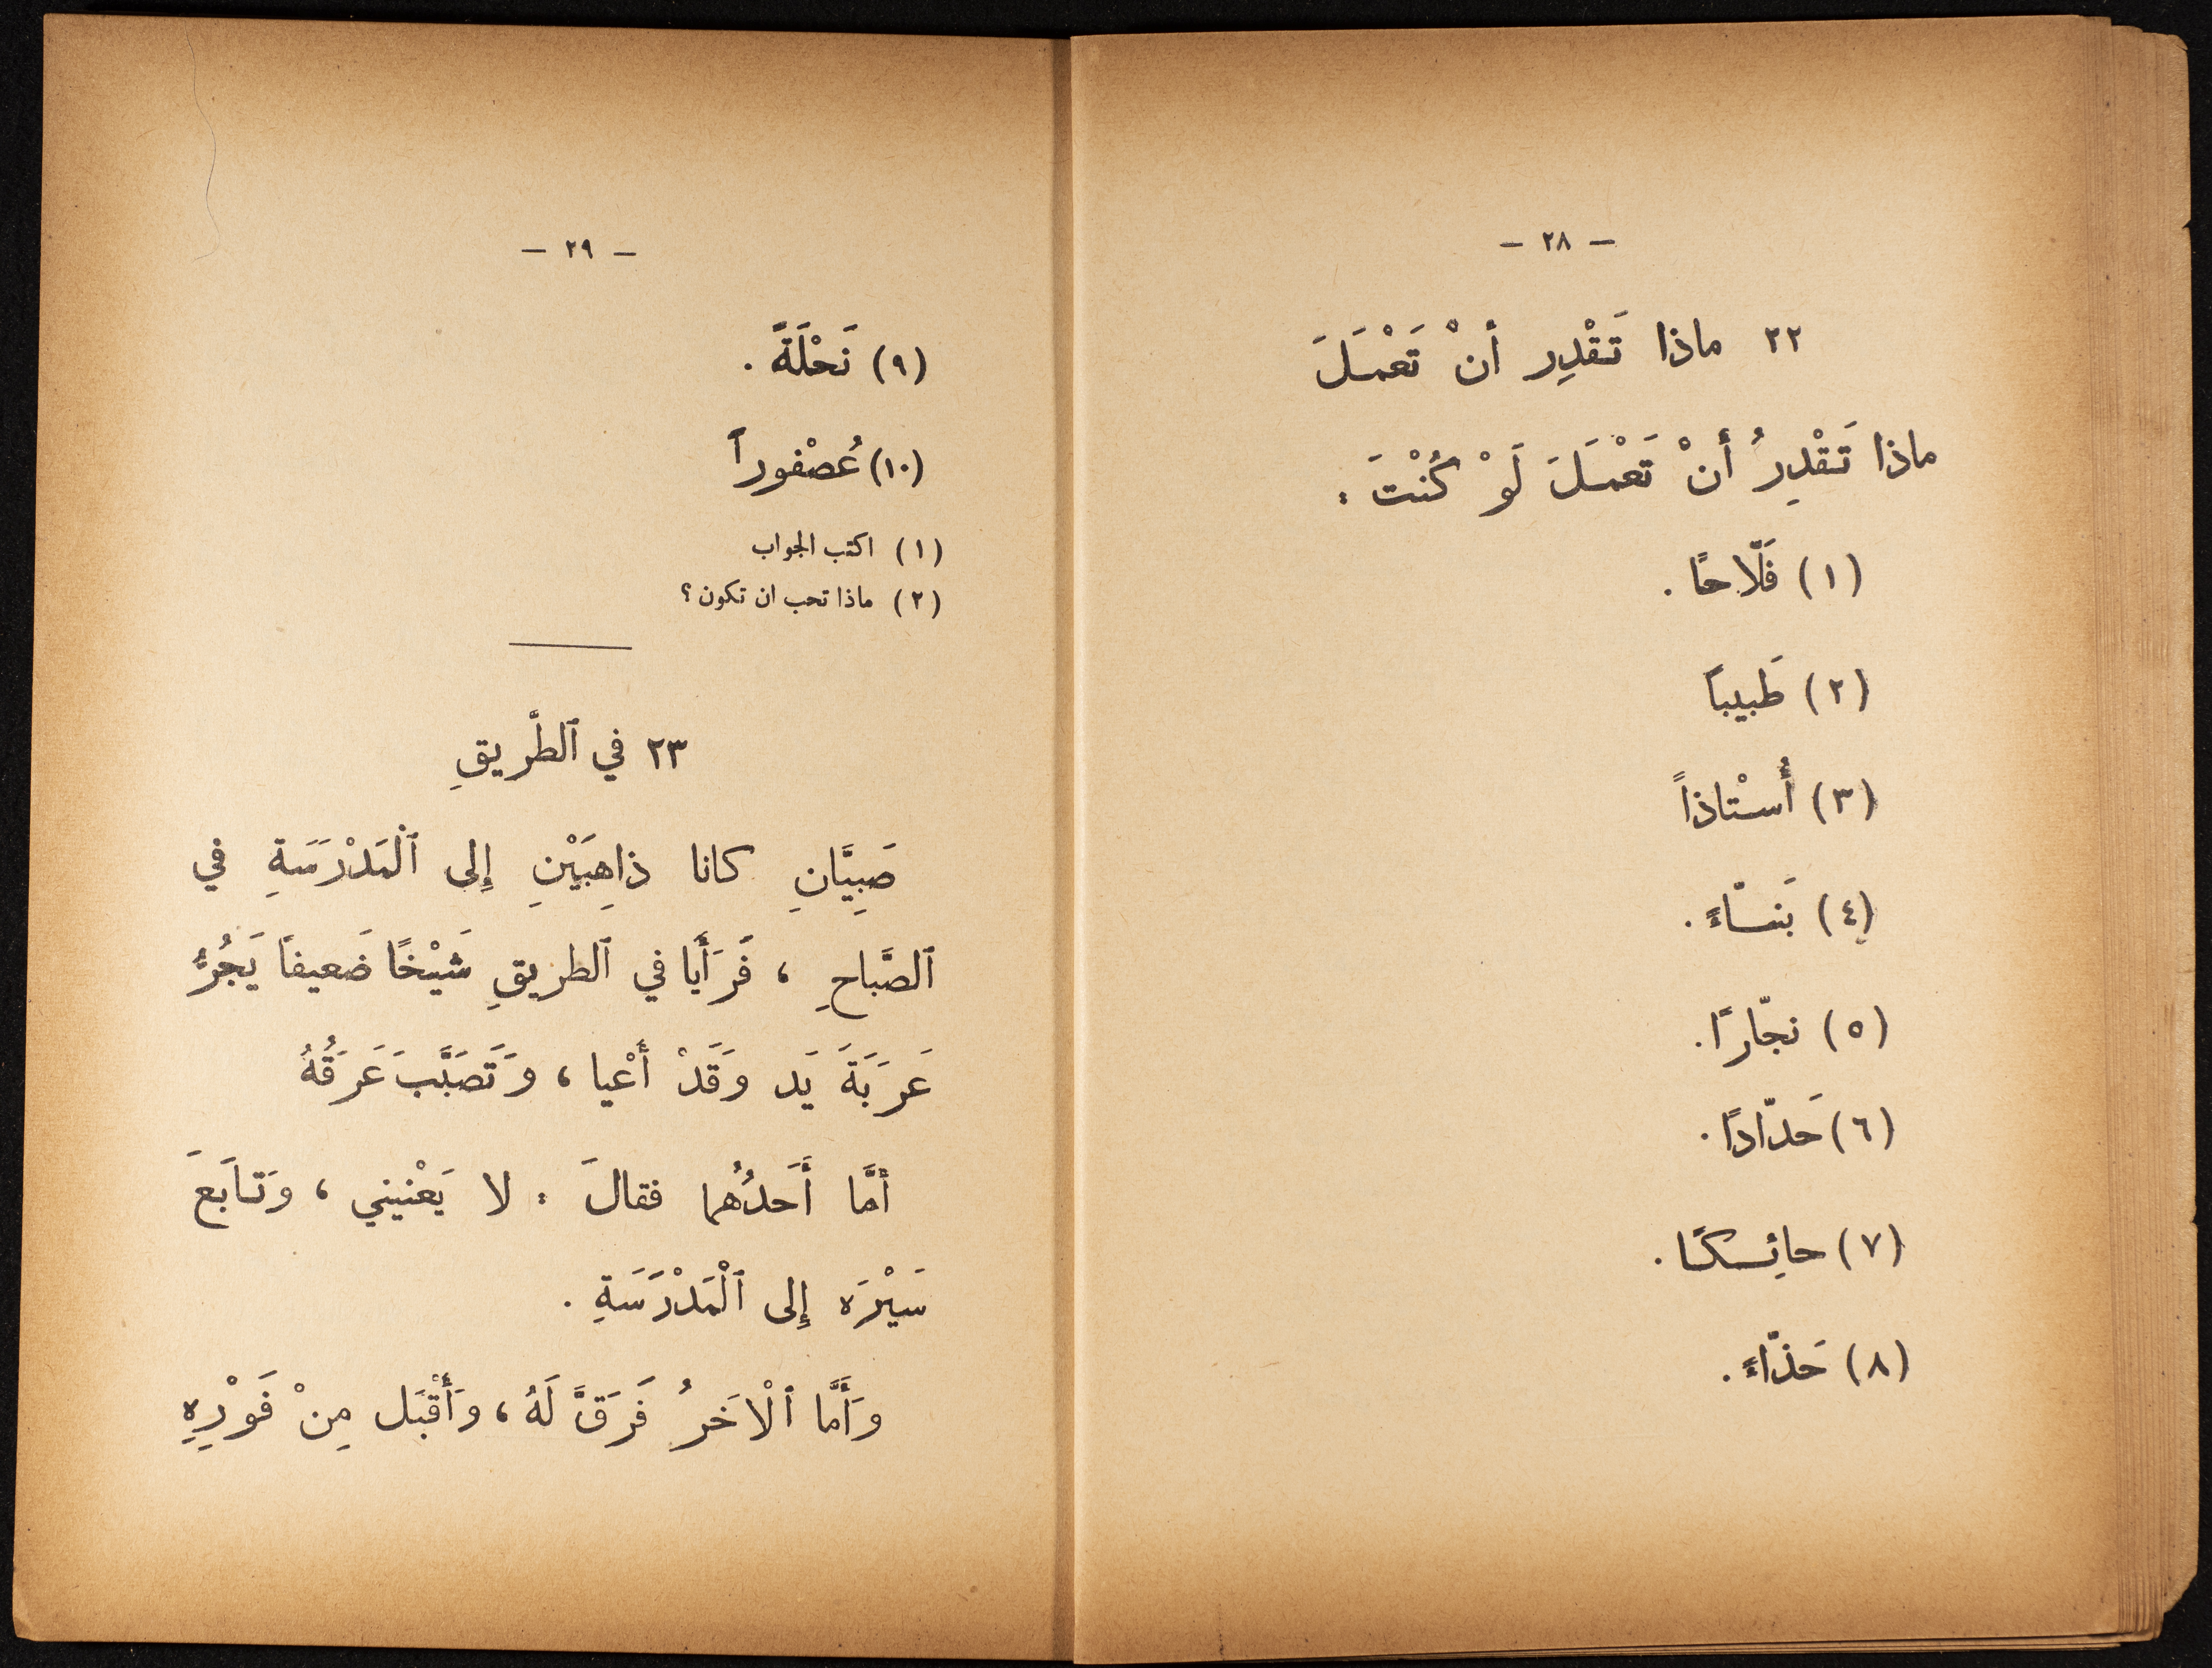 — ٢٨ —
٢٢ ماذا تَقْدِر أنْ تَعْمَلَ
ماذا تَقْدِرُ أَنْ تَعْمَلَ لَوْ كُنْتَ :
(١) فَلّاحًا .
(٢) طَبيباً
(٣) أُسْتاذاً
(٤) بَنّاءً .
(٥) نجّارًا .
(٦) حَدّادًا .
(٧) حائِكًا .
(٨) حَذّاءً .
— ٢٩ —
(٩) نَحْلَةً .
(١٠) عُصْفوراً
(١) اكتب الجواب
(٢) ماذا تحب ان تكون ؟
٢٣ في ٱلطَّريقِ
صَبِيَّانِ كانا ذاهِبَيْنِ إِلى ٱلْمَدْرَسَةِ في
ٱلصَّباحِ ، فَرَأَيا في ٱلطريقِ شَيْخًا ضَعيفاً يَجُرُّ
عَرَبَةَ يَد وَقَدْ أَعْيا ، وَتَصَبَّبَ عَرَقُهُ
أَمَّا أَحَدُهُما فقالَ : لا يَعْنيني ، وَتابَعَ
سَيْرَه إِلى ٱلْمَدْرَسَةِ .
وَأَمَّا ٱلْاخَرُ فَرَقَّ لَهُ ، وَأَقْبَل مِنْ فَوْرِهِ